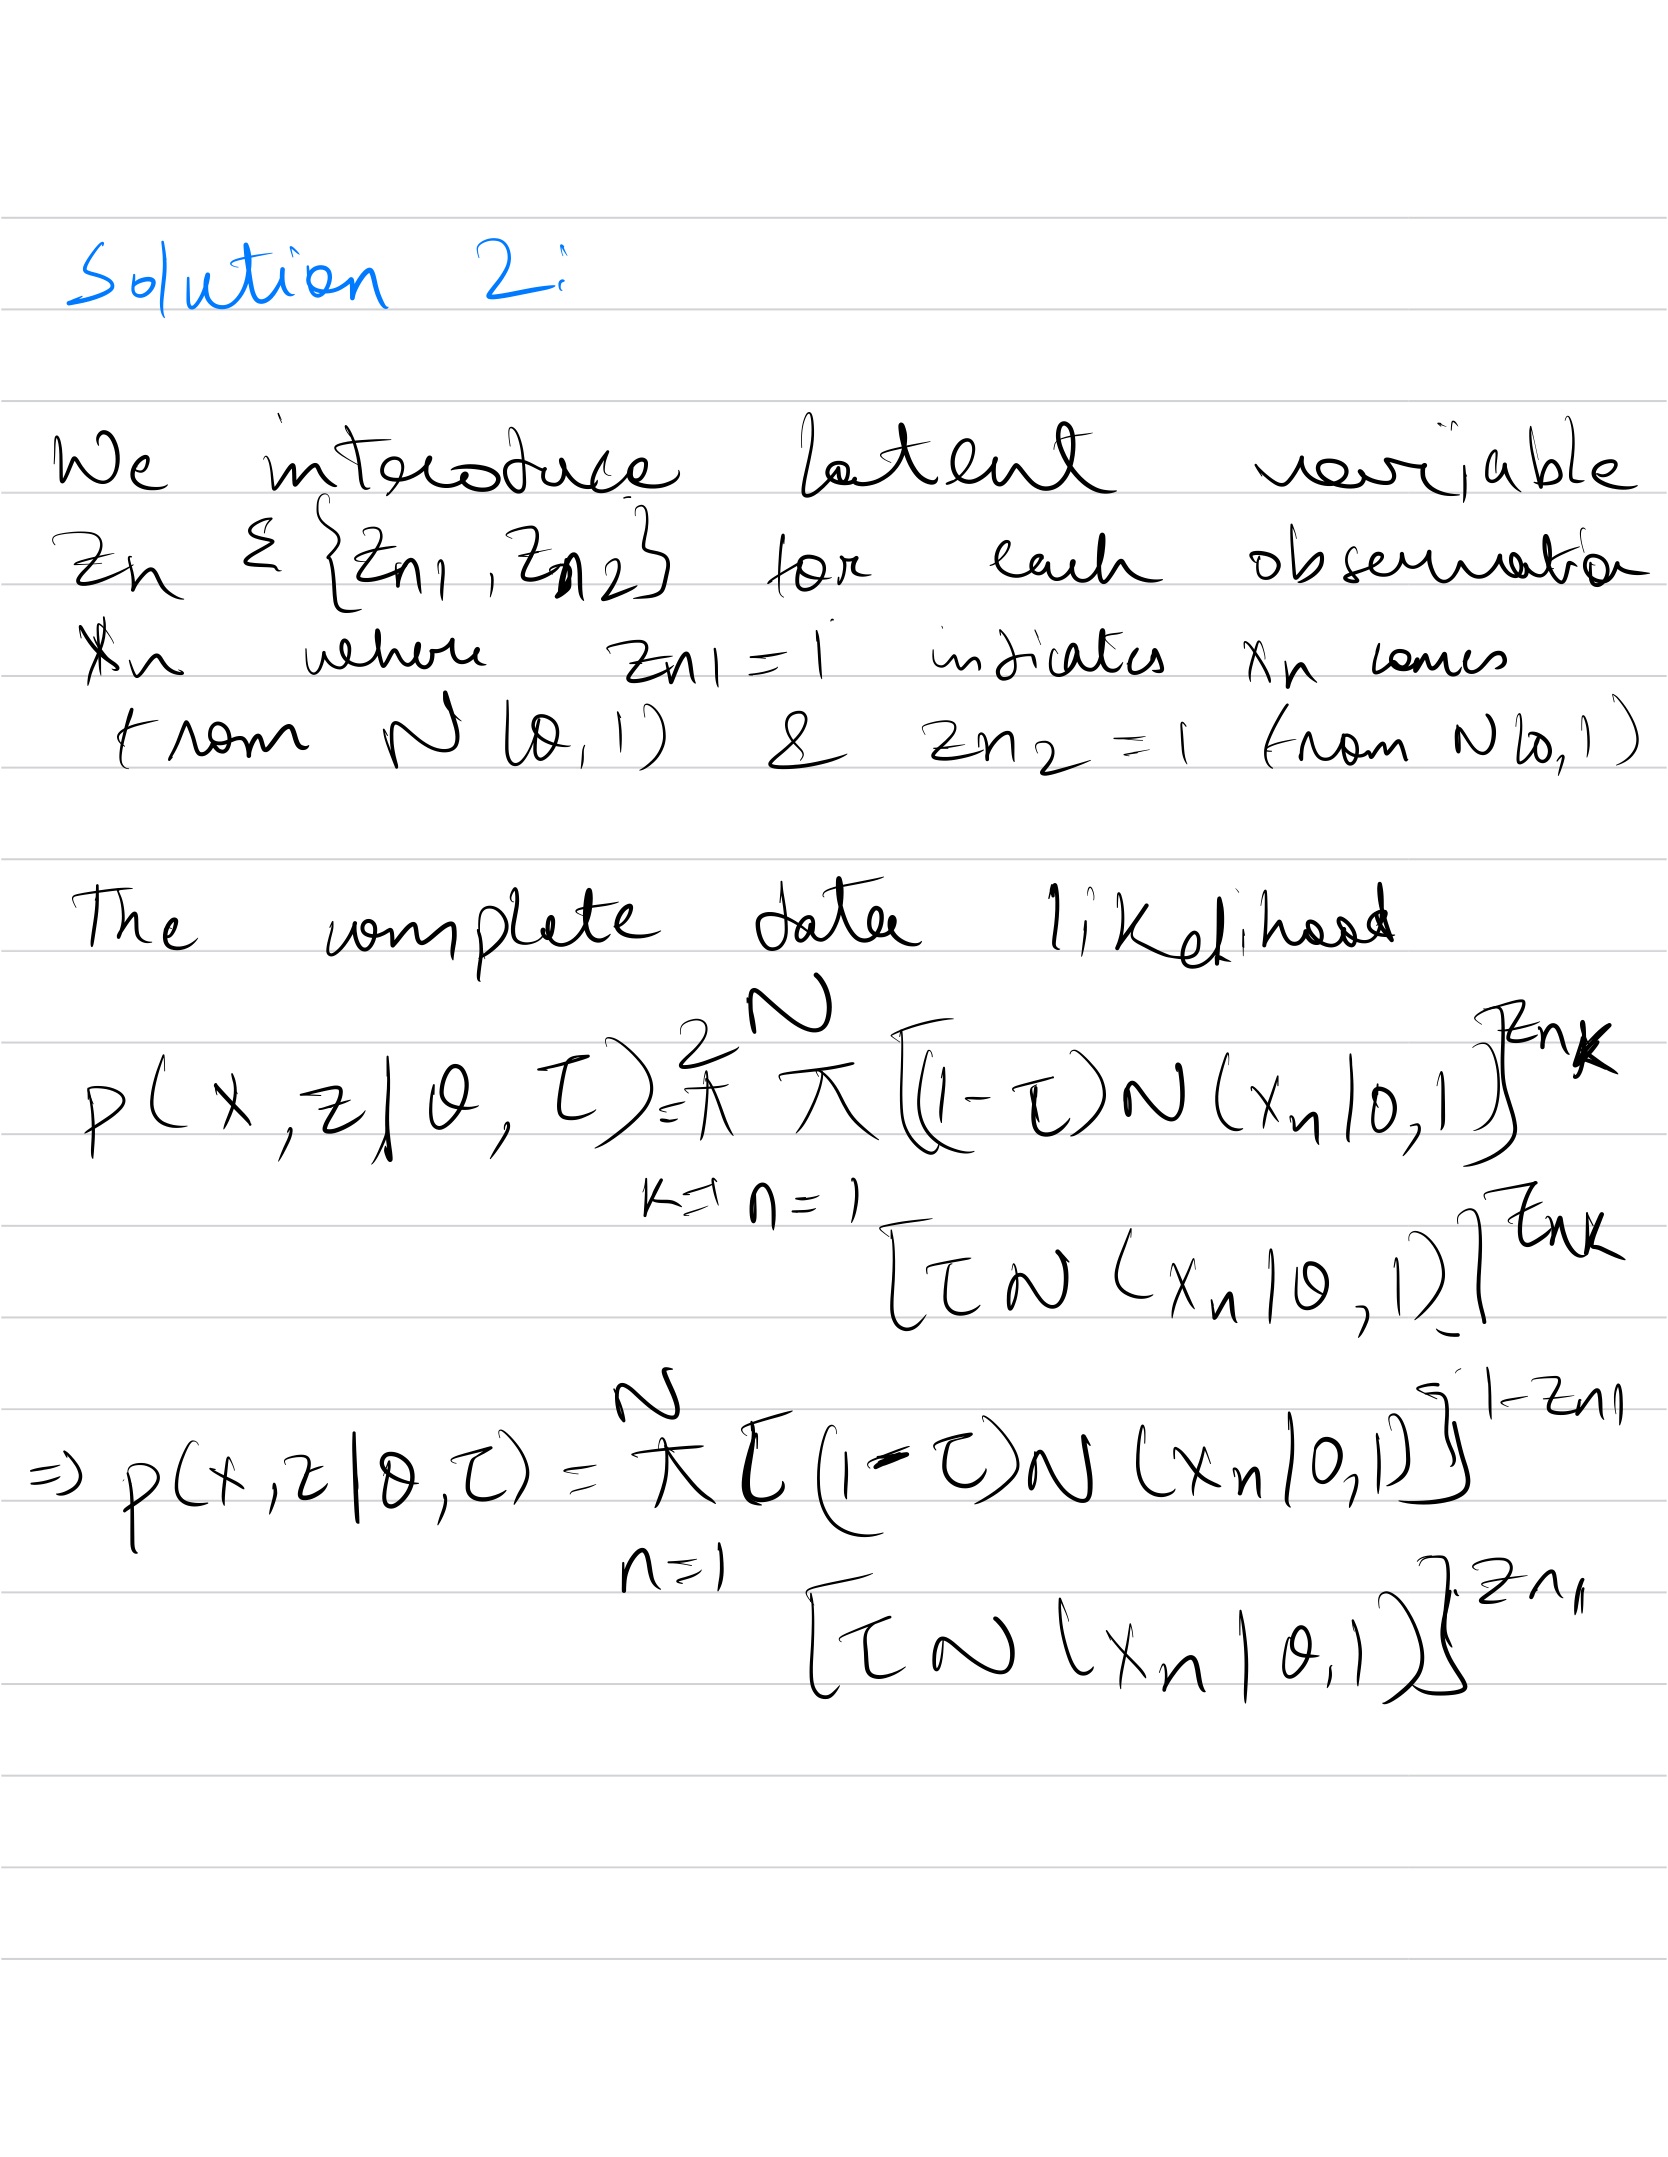 Solution 2:
We introduce latent variable
Zn ε {Zn1, Zn2} for each observation
xn where Zn1 = 1 indicates xn comes
from N(θ,1) & Zn2 = 1 from N(0,1)
The complete data likelihood
2 N
p(x,z|θ,τ) = π π [(1-τ)N(xn|0,1)]^Znk
k=1 n=1
[τN(xn|θ,1)]^Znk
N
⇒ p(x,z|θ,τ) = π [(1-τ)N(xn|0,1)]^1-Zn1
n=1
[τN(xn|θ,1)]^Zn1